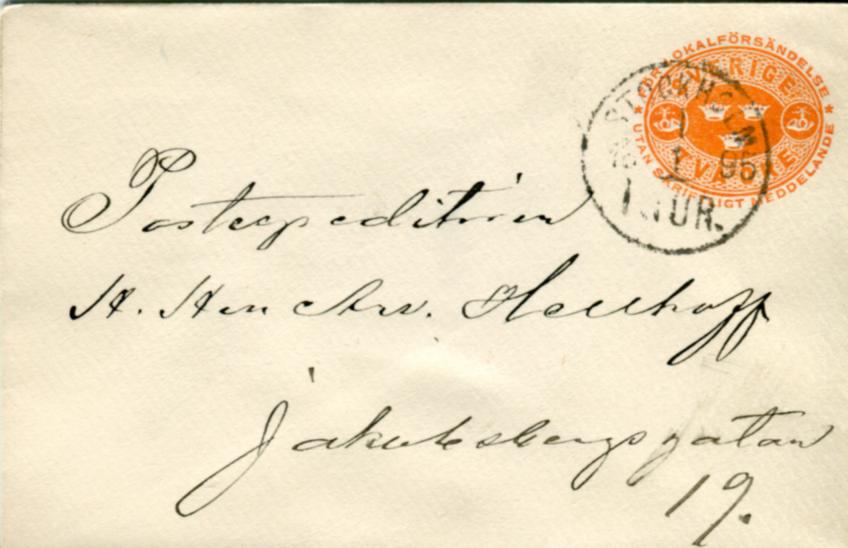 FÖR LOKALFÖRSÄNDELSE
SVERIGE
TVÅ ÖRE
UTAN SKRIFTLIGT MEDDELANDE
STOCKHOLM
1
1 95
1.TUR.
Postexpeditören
H. Herr Arv. Hellhoff
Jakobsbergsgatan
19.